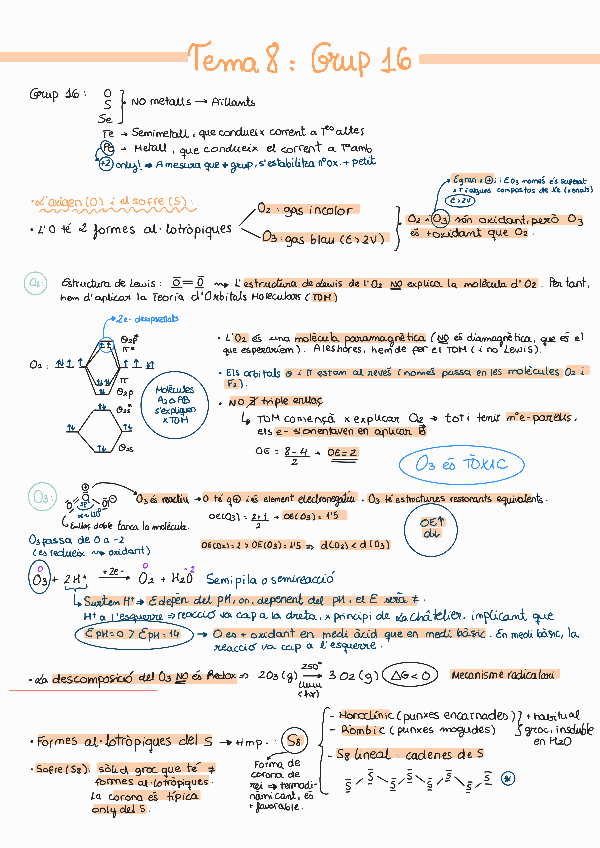 Tema 8: Grup 16
Grup 16: O
S
Se
NO metalls → Aïllants
Te → Semimetall, que condueix corrent a Tes altes
Po → Metall, que condueix el corrent a Tamb
+2 only! → A mesura que + grup, s'estabilitza nºox. + petit
• L'oxigen (O) i el sofre (S):
• L'O té 2 formes al·lotròpiques
O2: gas incolor
O3: gas blau (E>2V)
O2 i O3 són oxidant, però O3
és + oxidant que O2.
E gran i ⊕ i E O3 només és superat
x F i alguns compostos de Xe (xenats)
E>2V
O2:
Estructura de Lewis: O=O ⇝ L'estructura de Lewis de l'O2 NO explica la molècula d'O2. Per tant,
hem d'aplicar la Teoria d'Orbitals Moleculars (TOM)
→ 2e- desaparellats
O2:
σ2p*
π*
π
σ2p
σ2s*
σ2s
Molècules
A2 o AB
s'expliquen
x TOM
• L'O2 és una molècula paramagnètica (NO és diamagnètica, que és el
que esperaríem). Aleshores, hem de fer el TOM (i no Lewis).
• Els orbitals σ i π estan al revés (només passa en les molècules O2 i
F2).
• NO ∃ triple enllaç
↳ TOM començà x explicar O2 → tot i tenir nº e- parells,
els e- s'orientaven en aplicar B
OE = 8-4 / 2 → OE = 2
O3 és TÒXIC
O3:
O3 és reactiu → O té q⊕ i és element electronegatiu. • O3 té estructures ressonants equivalents.
Enllaç doble tanca la molècula.
OE(O3) = 2+1 / 2 → OE(O3) = 1'5
OE↑
d↓
O3 passa de 0 a -2
(es redueix ⇝ oxidant)
OE(O2) = 2 > OE(O3) = 1'5 ⇒ d(O2) < d(O3)
0 0 -2
O3 + 2H+ +2e-→ O2 + H2O Semipila o semireacció
↳ Surten H+ → E depèn del pH, on, depenent del pH, el E serà ≠.
H+ a l'esquerre → reacció va cap a la dreta, x principi de Le Châtelier, implicant que
E pH=0 > E pH=14 → O és + oxidant en medi àcid que en medi bàsic. En medi bàsic, la
reacció va cap a l'esquerre.
• La descomposició del O3 NO és Redox ⇒ 2O3 (g) 250° → 3 O2 (g) ΔG<0 Mecanisme radicalari
• Formes al·lotròpiques del S → + imp.: S8
Forma de
corona de
rei → termodi-
nàmicant, és
+ favorable.
- Monoclínic (punxes encarnades)
- Ròmbic (punxes mogudes)
+ habitual
groc, insoluble
en H2O
- S8 lineal: cadenes de S
S S S S S S S S
• Sofre (S8): sòlid groc que té ≠
formes al·lotròpiques.
La corona és típica
only del S.